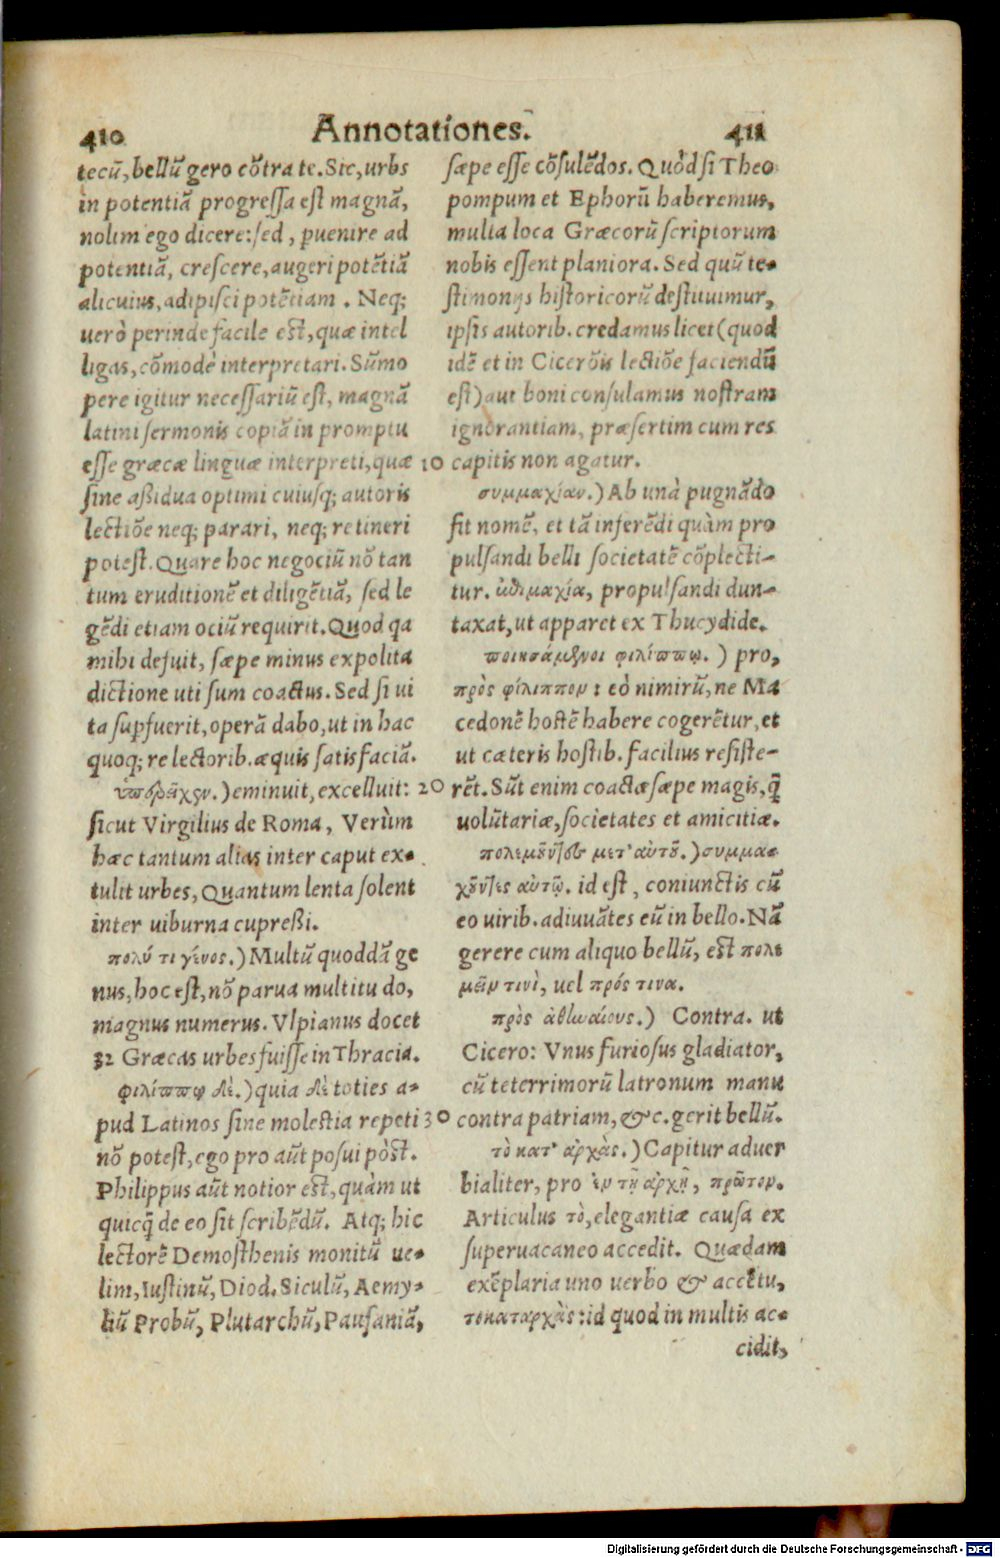 410 Annotationes. 411
tecũ, bellũ gero cõtra te. Sic, urbs
in potentiã progressa est magnã,
nolim ego dicere: sed, puenire ad
potentiã, crescere, augeri potẽtiã
alicuius, adipisci potẽtiam. Neq;
uerò perinde facile est, quæ intel
ligas, cõmodè interpretari. Sũmo
pere igitur necessariũ est, magnã
latini sermonis copiã in promptu
esse græcæ linguæ interpreti, quæ
sine aßidua optimi cuiusq; autoris
lectiõe neq; parari, neq; retineri
potest. Quare hoc negociũ nõ tan
tum eruditionẽ et diligẽtiã, sed le
gẽdi etiam ociũ requirit. Quod qa
mihi defuit, sæpe minus expolita
dictione uti sum coactus. Sed si ui
ta supfuerit, operã dabo, ut in hac
quoq; re lectorib. æquis satisfaciã.
ὑπῆρχεν.) eminuit, excelluit:
sicut Virgilius de Roma, Verùm
hæc tantum alias inter caput ex-
tulit urbes, Quantum lenta solent
inter uiburna cupreßi.
πολύ τι γένος.) Multũ quoddã ge
nus, hoc est, nõ parua multitudo,
magnus numerus. Vlpianus docet
32 Græcas urbes fuisse in Thracia.
φιλίππῳ δὲ.) quia δὲ toties a-
pud Latinos sine molestia repeti
nõ potest, ego pro aũt posui pòst.
Philippus aũt notior est, quàm ut
quicq̃ de eo sit scribẽdũ. Atq; hic
lectorẽ Demosthenis monitũ ue-
lim, Iustinũ, Diod. Siculũ, Aemy-
liũ Probũ, Plutarchũ, Pausaniã,
sæpe esse cõsulẽdos. Quòd si Theo
pompum et Ephorũ haberemus,
multa loca Græcorũ scriptorum
nobis essent planiora. Sed quũ te-
stimonijs historicorũ destituimur,
ipsis autorib. credamus licet (quod
idẽ et in Cicerõis lectiõe faciendũ
est) aut boni consulamus nostram
ignorantiam, præsertim cum res
10 capitis non agatur.
συμμαχίαν.) Ab unà pugnãdo
fit nomẽ, et tã inferẽdi quàm pro
pulsandi belli societatẽ cõplecti-
tur. ἐπιμαχία, propulsandi dun-
taxat, ut apparet ex Thucydide.
ποιησάμενοι φιλίππῳ.) pro,
πρὸς φίλιππον: eò nimirũ, ne Ma
cedonẽ hostẽ habere cogerẽtur, et
ut cæteris hostib. facilius resiste-
20 rẽt. Sũt enim coactæ sæpe magis, q̃
uolũtariæ, societates et amicitiæ.
πολεμοῦντες μετ' αὐτοῦ.) συμμα-
χοῦντες αὐτῷ. id est, coniunctis cũ
eo uirib. adiuuãtes eũ in bello. Nã
gerere cum aliquo bellũ, est πολε
μεῖν τινὶ, uel πρός τινα.
πρὸς ἀθηναίους.) Contra. ut
Cicero: Vnus furiosus gladiator,
cũ teterrimorũ latronum manu
30 contra patriam, &c. gerit bellũ.
τὸ κατ' ἀρχὰς.) Capitur aduer
bialiter, pro ἐν τῇ ἀρχῇ, πρῶτον.
Articulus τὸ, elegantiæ causa ex
superuacaneo accedit. Quædam
exẽplaria uno uerbo & accẽtu,
τοκαταρχὰς: id quod in multis ac-
cidit,
Digitalisierung gefördert durch die Deutsche Forschungsgemeinschaft - DFG